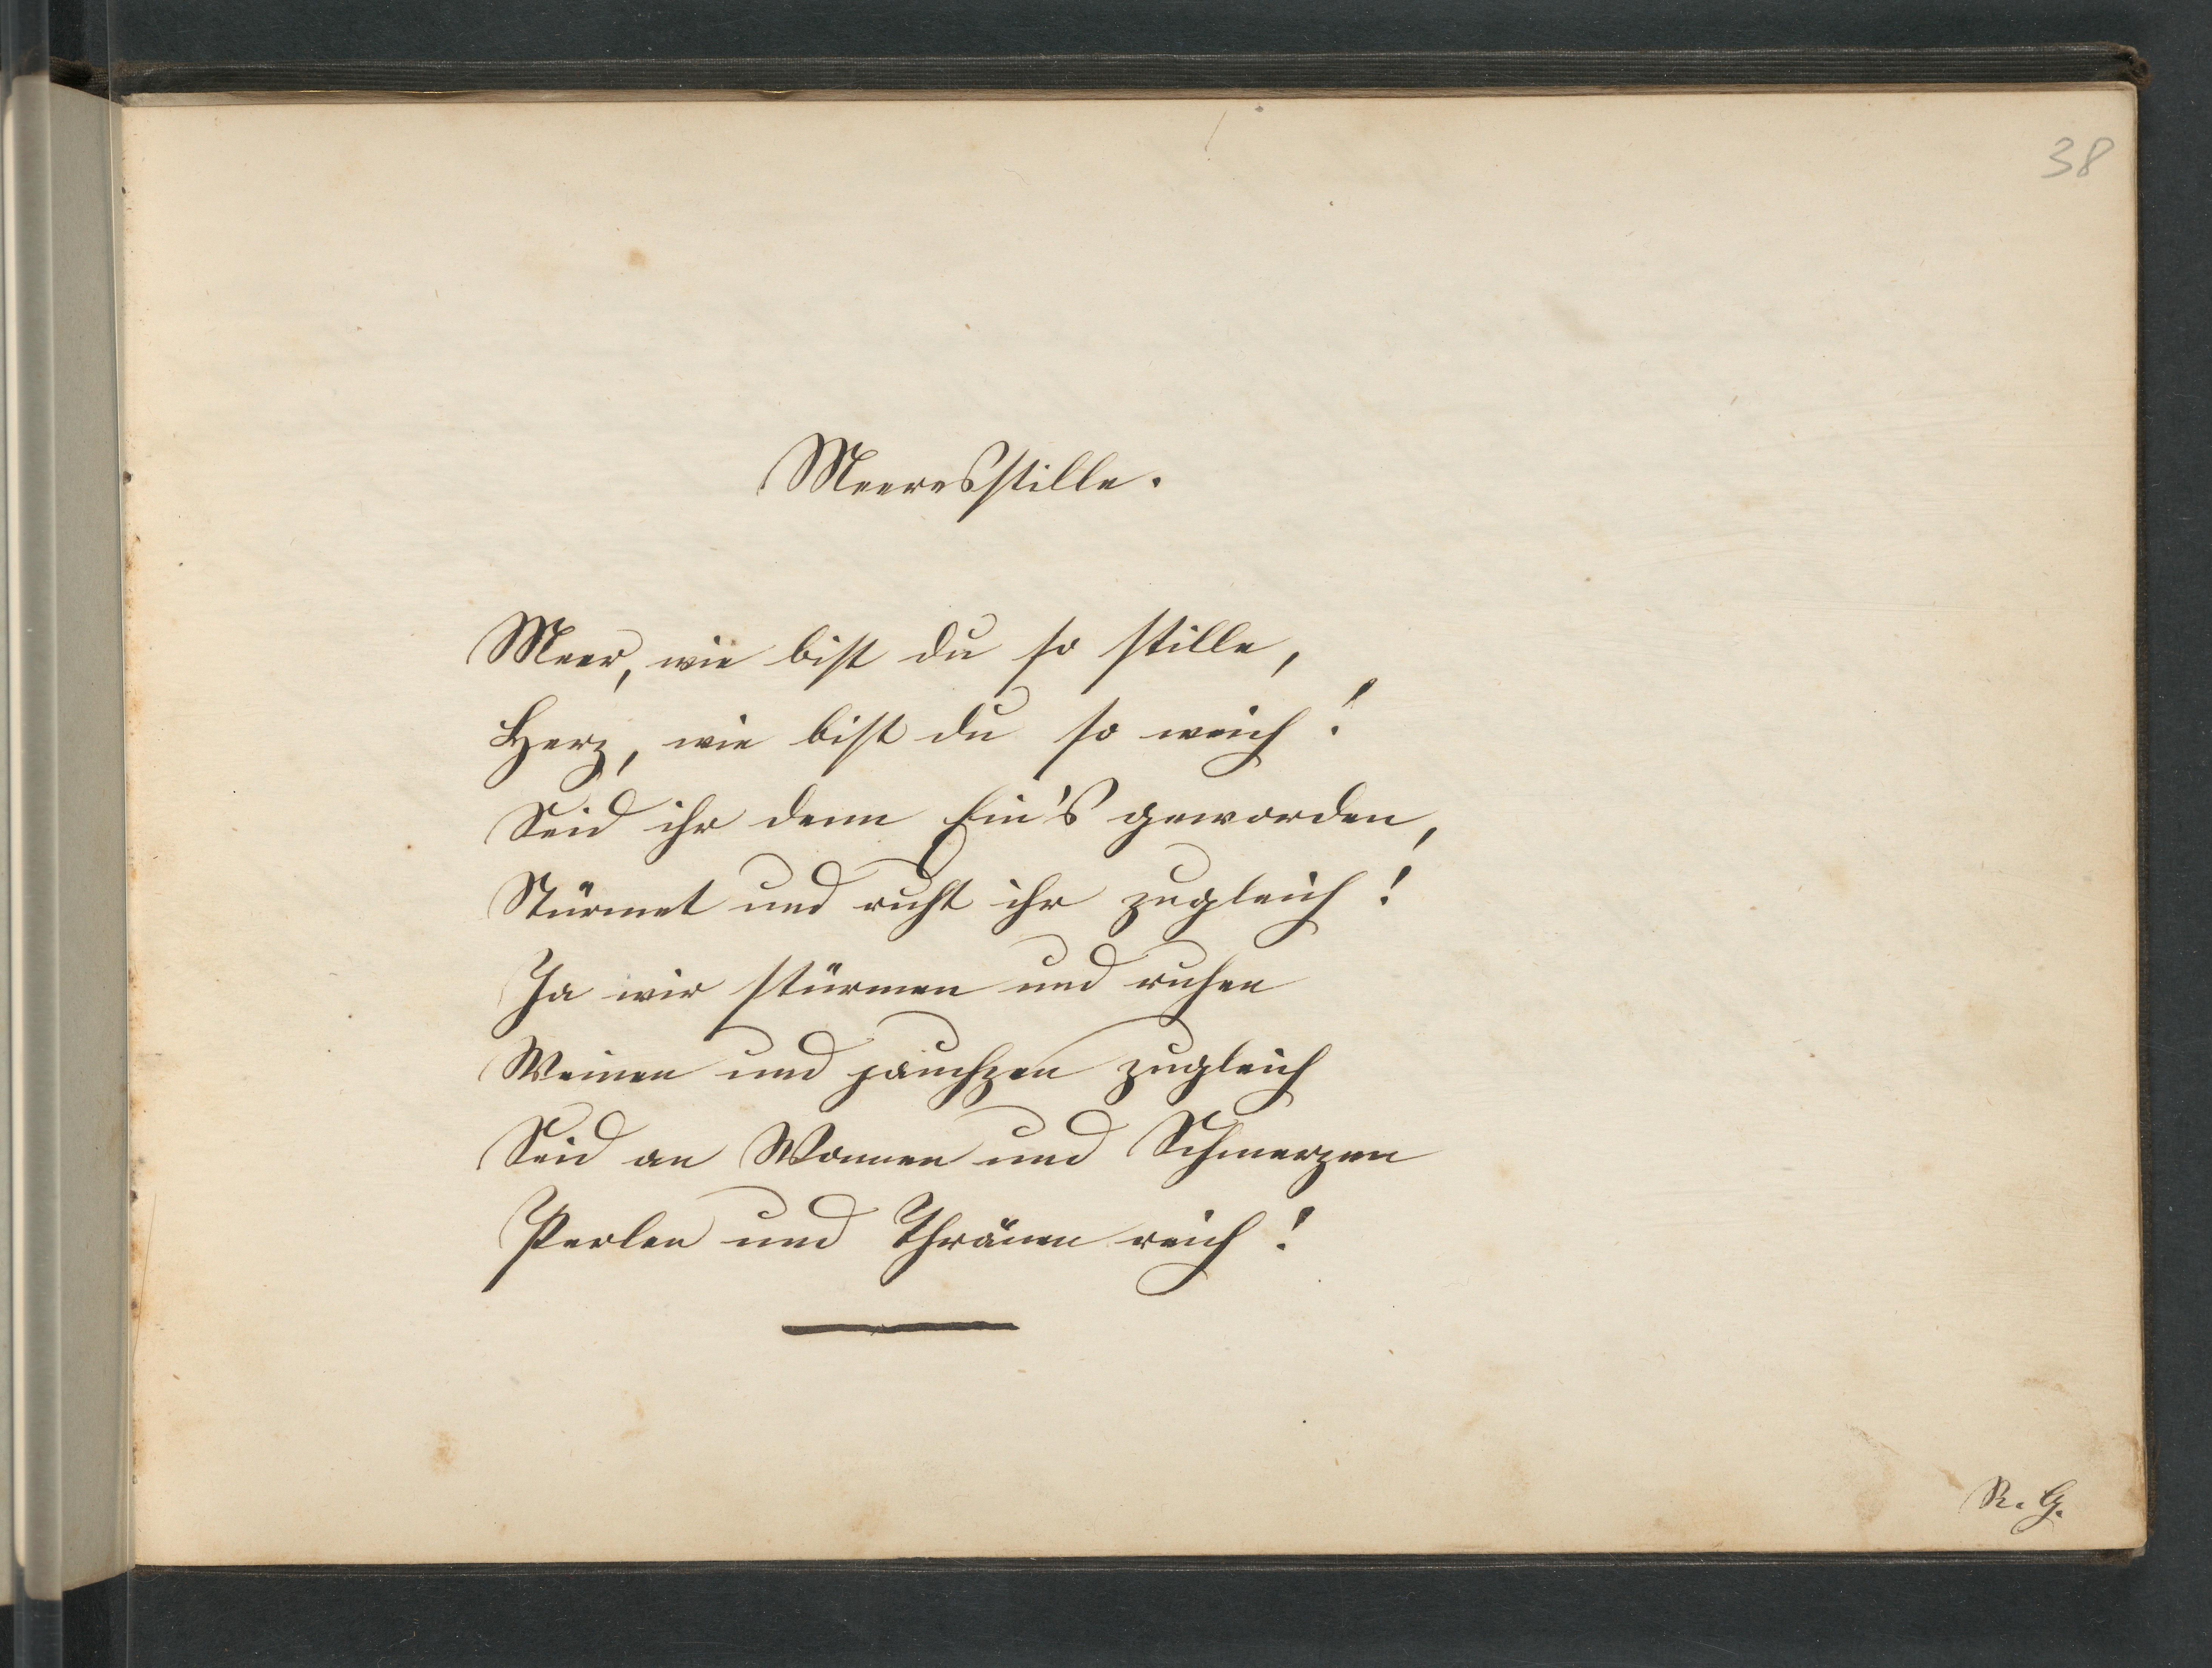 38
Meeresstille.
Meer, wie bist du so stille,
Herz, wie bist du so weich!
Seid ihr denn Ein's geworden,
Stürmet und ruht ihr zugleich!
Ja wir stürmen und ruhen
Weinen und jauchzen zugleich
Seid an Wonnen und Schmerzen
Perlen und Thränen reich!
R. G.